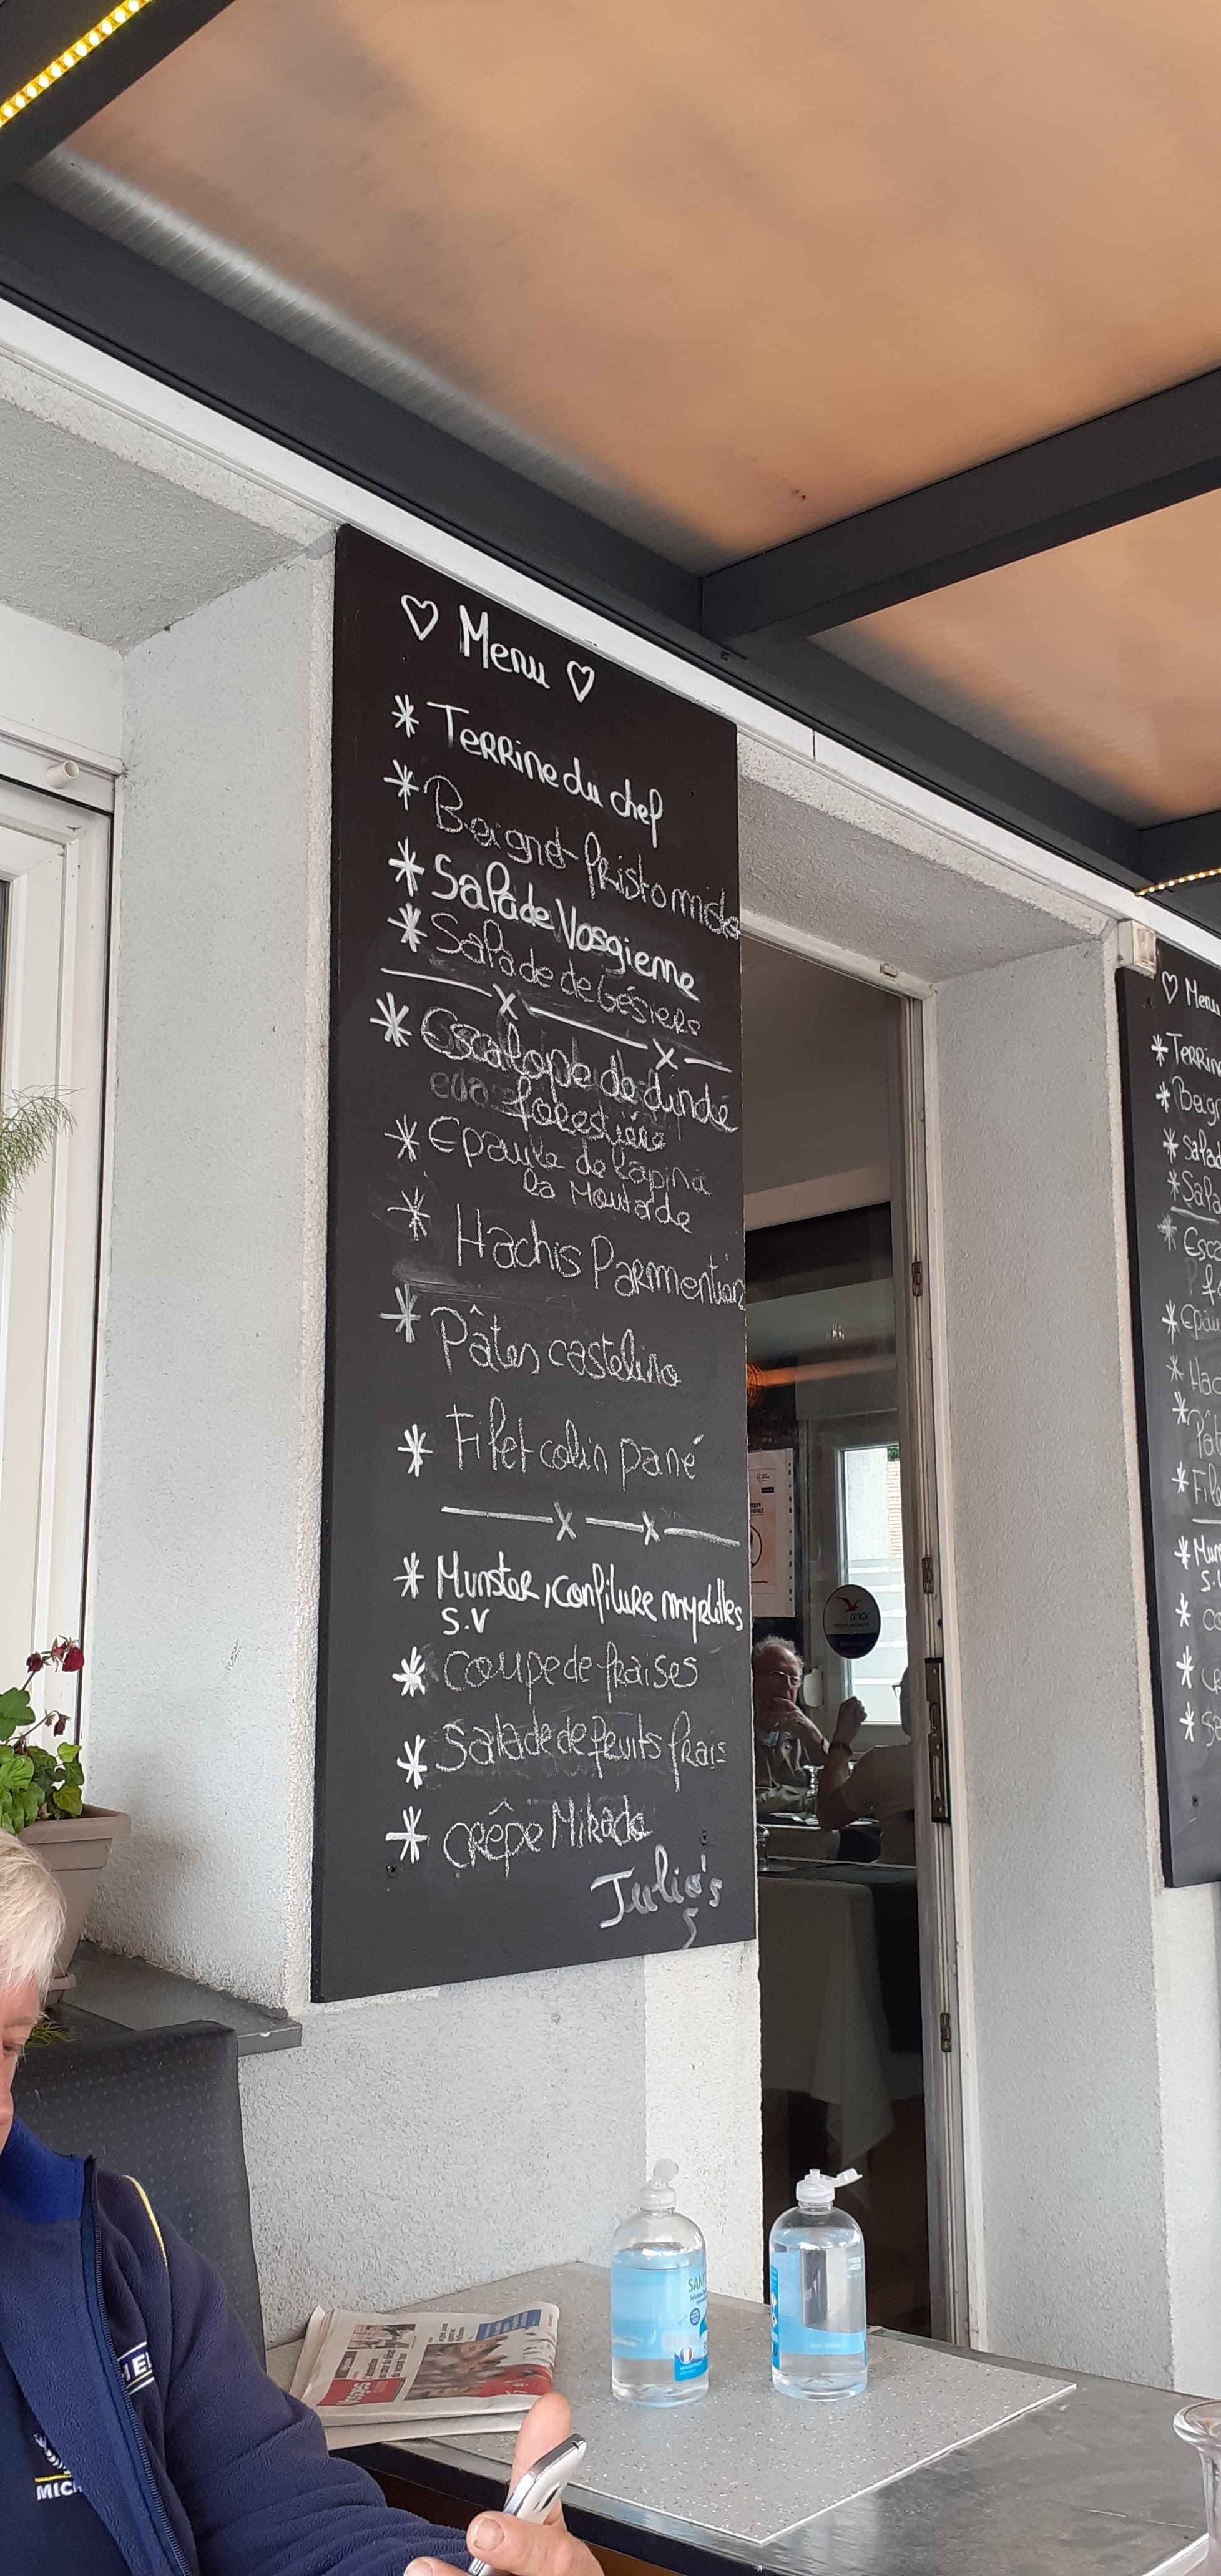 ♡ Menu ♡
* Terrine du chef
* Beignet
* Salade Vosgienne
* Salade de Gésiers
* Escalope de dinde
forestière
* Epaule de lapin à
la Moutarde
* Hachis Parmentier
* Pâtes castelino
* Filet colin pané
* Munster, confiture myrtilles
S.V
* coupe de fraises
* Salade de fruits frais
* crêpe Mikado
Julia's
♡ Menu
* Terrine
* Beign
* Salad
* Salad
* Esca
fo
* Epau
* Hac
* Pât
* File
* Mun
S.V
* co
* Sa
ancv
SANI
Vosges
MICH